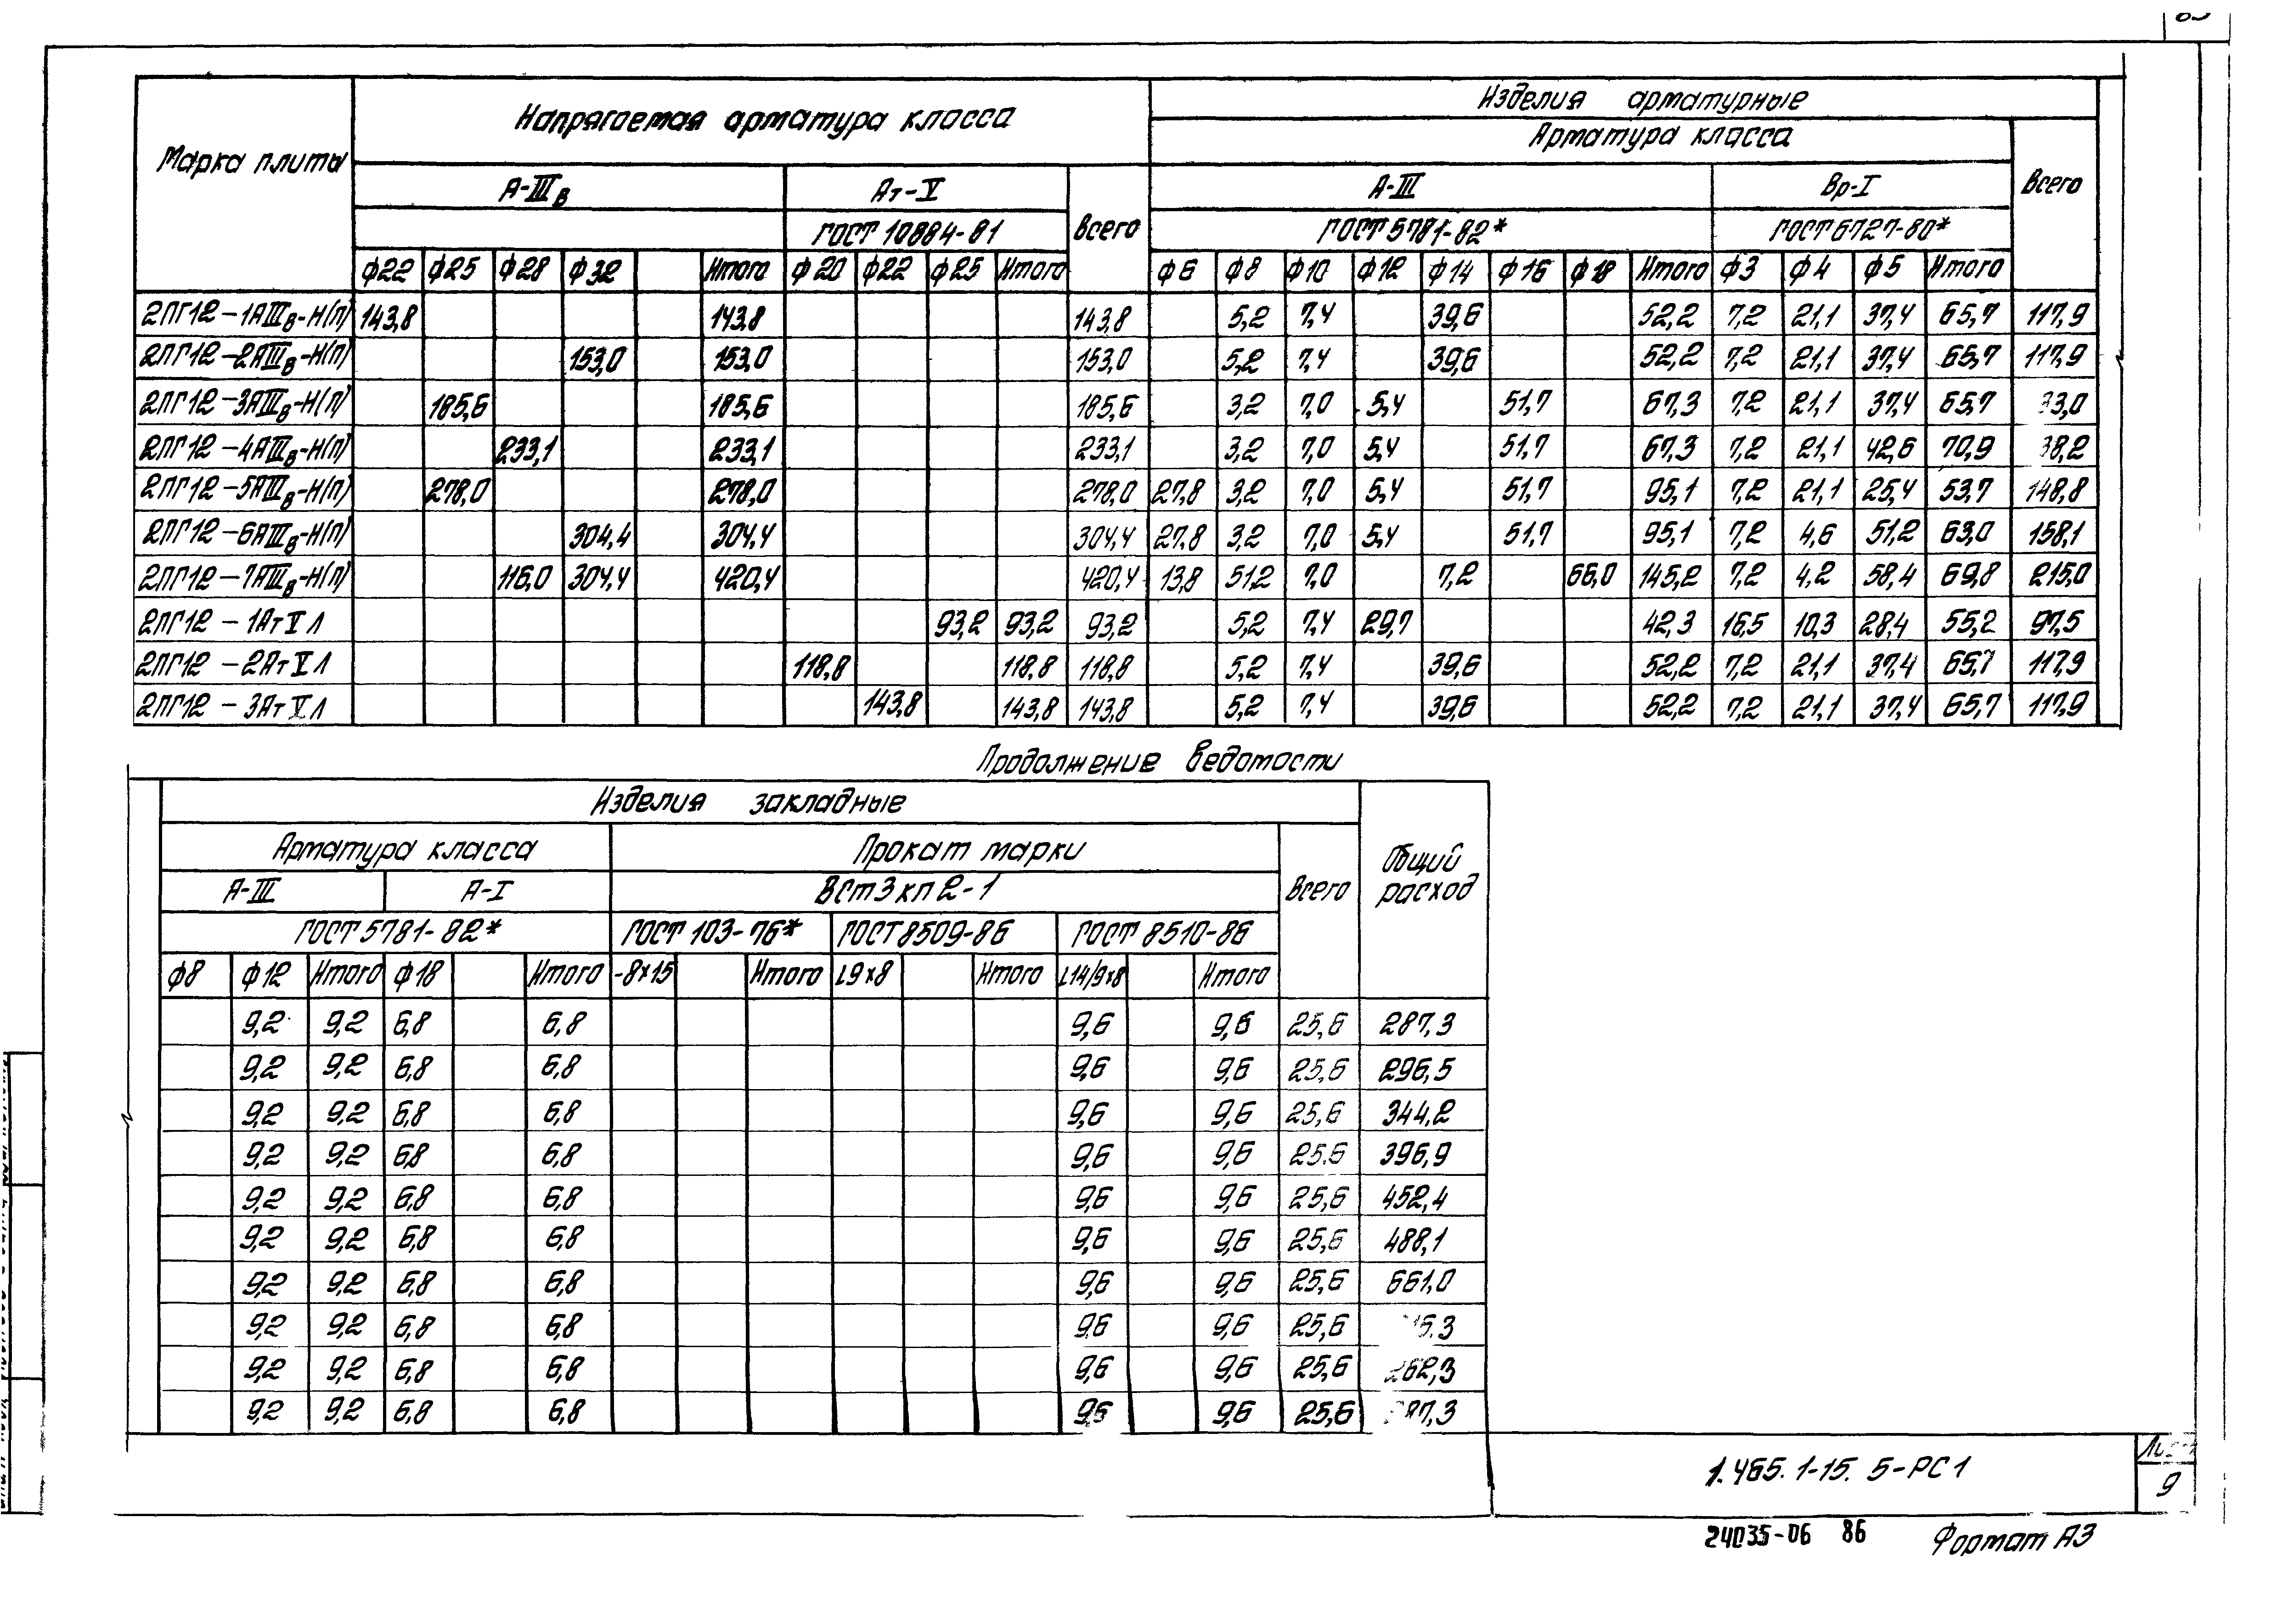 Марка плиты
Напрягаемая арматура класса
Изделия арматурные
Арматура класса
Всего
А-IIIв
Ат-V
Всего
А-III
Вр-I
ГОСТ 10884-81
ГОСТ 5781-82*
ГОСТ 6727-80*
ф22 ф25 ф28 ф32 Итого ф20 ф22 ф25 Итого ф6 ф8 ф10 ф12 ф14 ф16 ф18 Итого ф3 ф4 ф5 Итого
2ПГ12-1АIIIв-Н(П) 143,8 143,8 143,8 5,2 7,4 39,6 52,2 7,2 21,1 37,4 65,7 117,9
2ПГ12-2АIIIв-Н(П) 153,0 153,0 153,0 5,2 7,4 39,6 52,2 7,2 21,1 37,4 65,7 117,9
2ПГ12-3АIIIв-Н(П) 185,6 185,6 185,6 3,2 7,0 5,4 51,7 67,3 7,2 21,1 37,4 65,7 33,0
2ПГ12-4АIIIв-Н(П) 233,1 233,1 233,1 3,2 7,0 5,4 51,7 67,3 7,2 21,1 42,6 70,9 38,2
2ПГ12-5АIIIв-Н(П) 278,0 278,0 278,0 27,8 3,2 7,0 5,4 51,7 95,1 7,2 21,1 25,4 53,7 148,8
2ПГ12-6АIIIв-Н(П) 304,4 304,4 304,4 27,8 3,2 7,0 5,4 51,7 95,1 7,2 4,6 51,2 63,0 158,1
2ПГ12-7АIIIв-Н(П) 116,0 304,4 420,4 420,4 13,8 51,2 7,0 7,2 66,0 145,2 7,2 4,2 58,4 69,8 215,0
2ПГ12-1АтVЛ 93,2 93,2 93,2 5,2 7,4 29,7 42,3 16,5 10,3 28,4 55,2 97,5
2ПГ12-2АтVЛ 118,8 118,8 118,8 5,2 7,4 39,6 52,2 7,2 21,1 37,4 65,7 117,9
2ПГ12-3АтVЛ 143,8 143,8 143,8 5,2 7,4 39,6 52,2 7,2 21,1 37,4 65,7 117,9
Продолжение ведомости
Изделия закладные
Общий
расход
Арматура класса
Прокат марки
Всего
А-III
А-I
ВСт3кп2-1
ГОСТ 5781-82*
ГОСТ 103-76*
ГОСТ 8509-86
ГОСТ 8510-86
ф8 ф12 Итого ф18 Итого -8×15 Итого L9×8 Итого L14/9×8 Итого
9,2 9,2 6,8 6,8 9,6 9,6 25,6 287,3
9,2 9,2 6,8 6,8 9,6 9,6 25,6 296,5
9,2 9,2 6,8 6,8 9,6 9,6 25,6 344,2
9,2 9,2 6,8 6,8 9,6 9,6 25,6 396,9
9,2 9,2 6,8 6,8 9,6 9,6 25,6 452,4
9,2 9,2 6,8 6,8 9,6 9,6 25,6 488,1
9,2 9,2 6,8 6,8 9,6 9,6 25,6 661,0
9,2 9,2 6,8 6,8 9,6 9,6 25,6
9,2 9,2 6,8 6,8 9,6 9,6 25,6 262,3
9,2 9,2 6,8 6,8 9,6 9,6 25,6 287,3
1.465.1-15. 5-РС1
Лист
9
24035-06 86
Формат А3